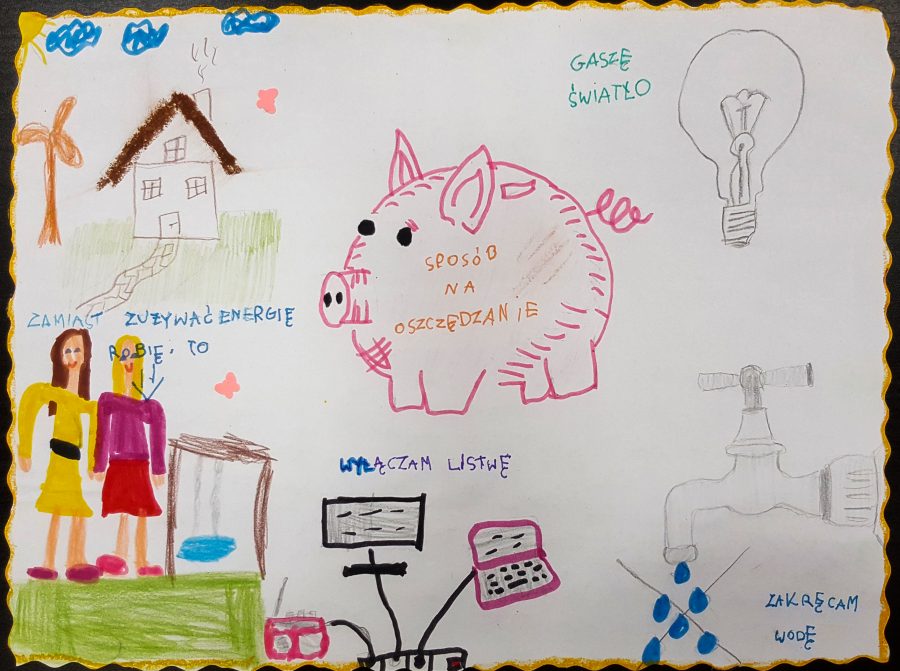 GASZĘ
ŚWIATŁO
SPOSÓB
NA
OSZCZĘDZANIE
ZAMIAST ZUŻYWAĆ ENERGIĘ
ROBIĘ TO
WYŁĄCZAM LISTWĘ
ZAKRĘCAM
WODĘ